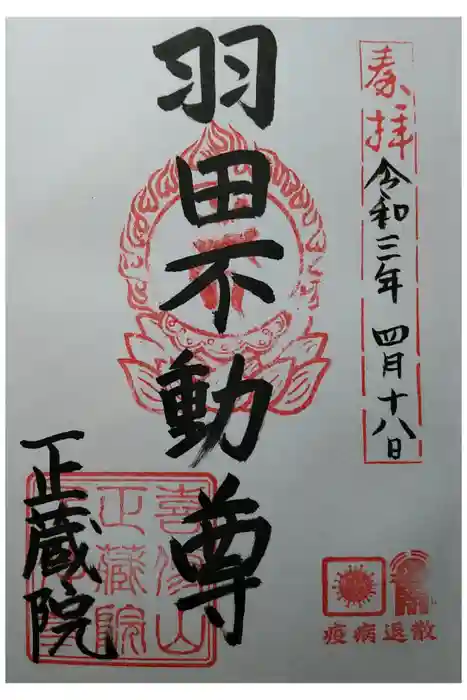 奉拝
令和三年 四月十八日
羽田不動尊
正蔵院
喜修山
正蔵院
疫病退散